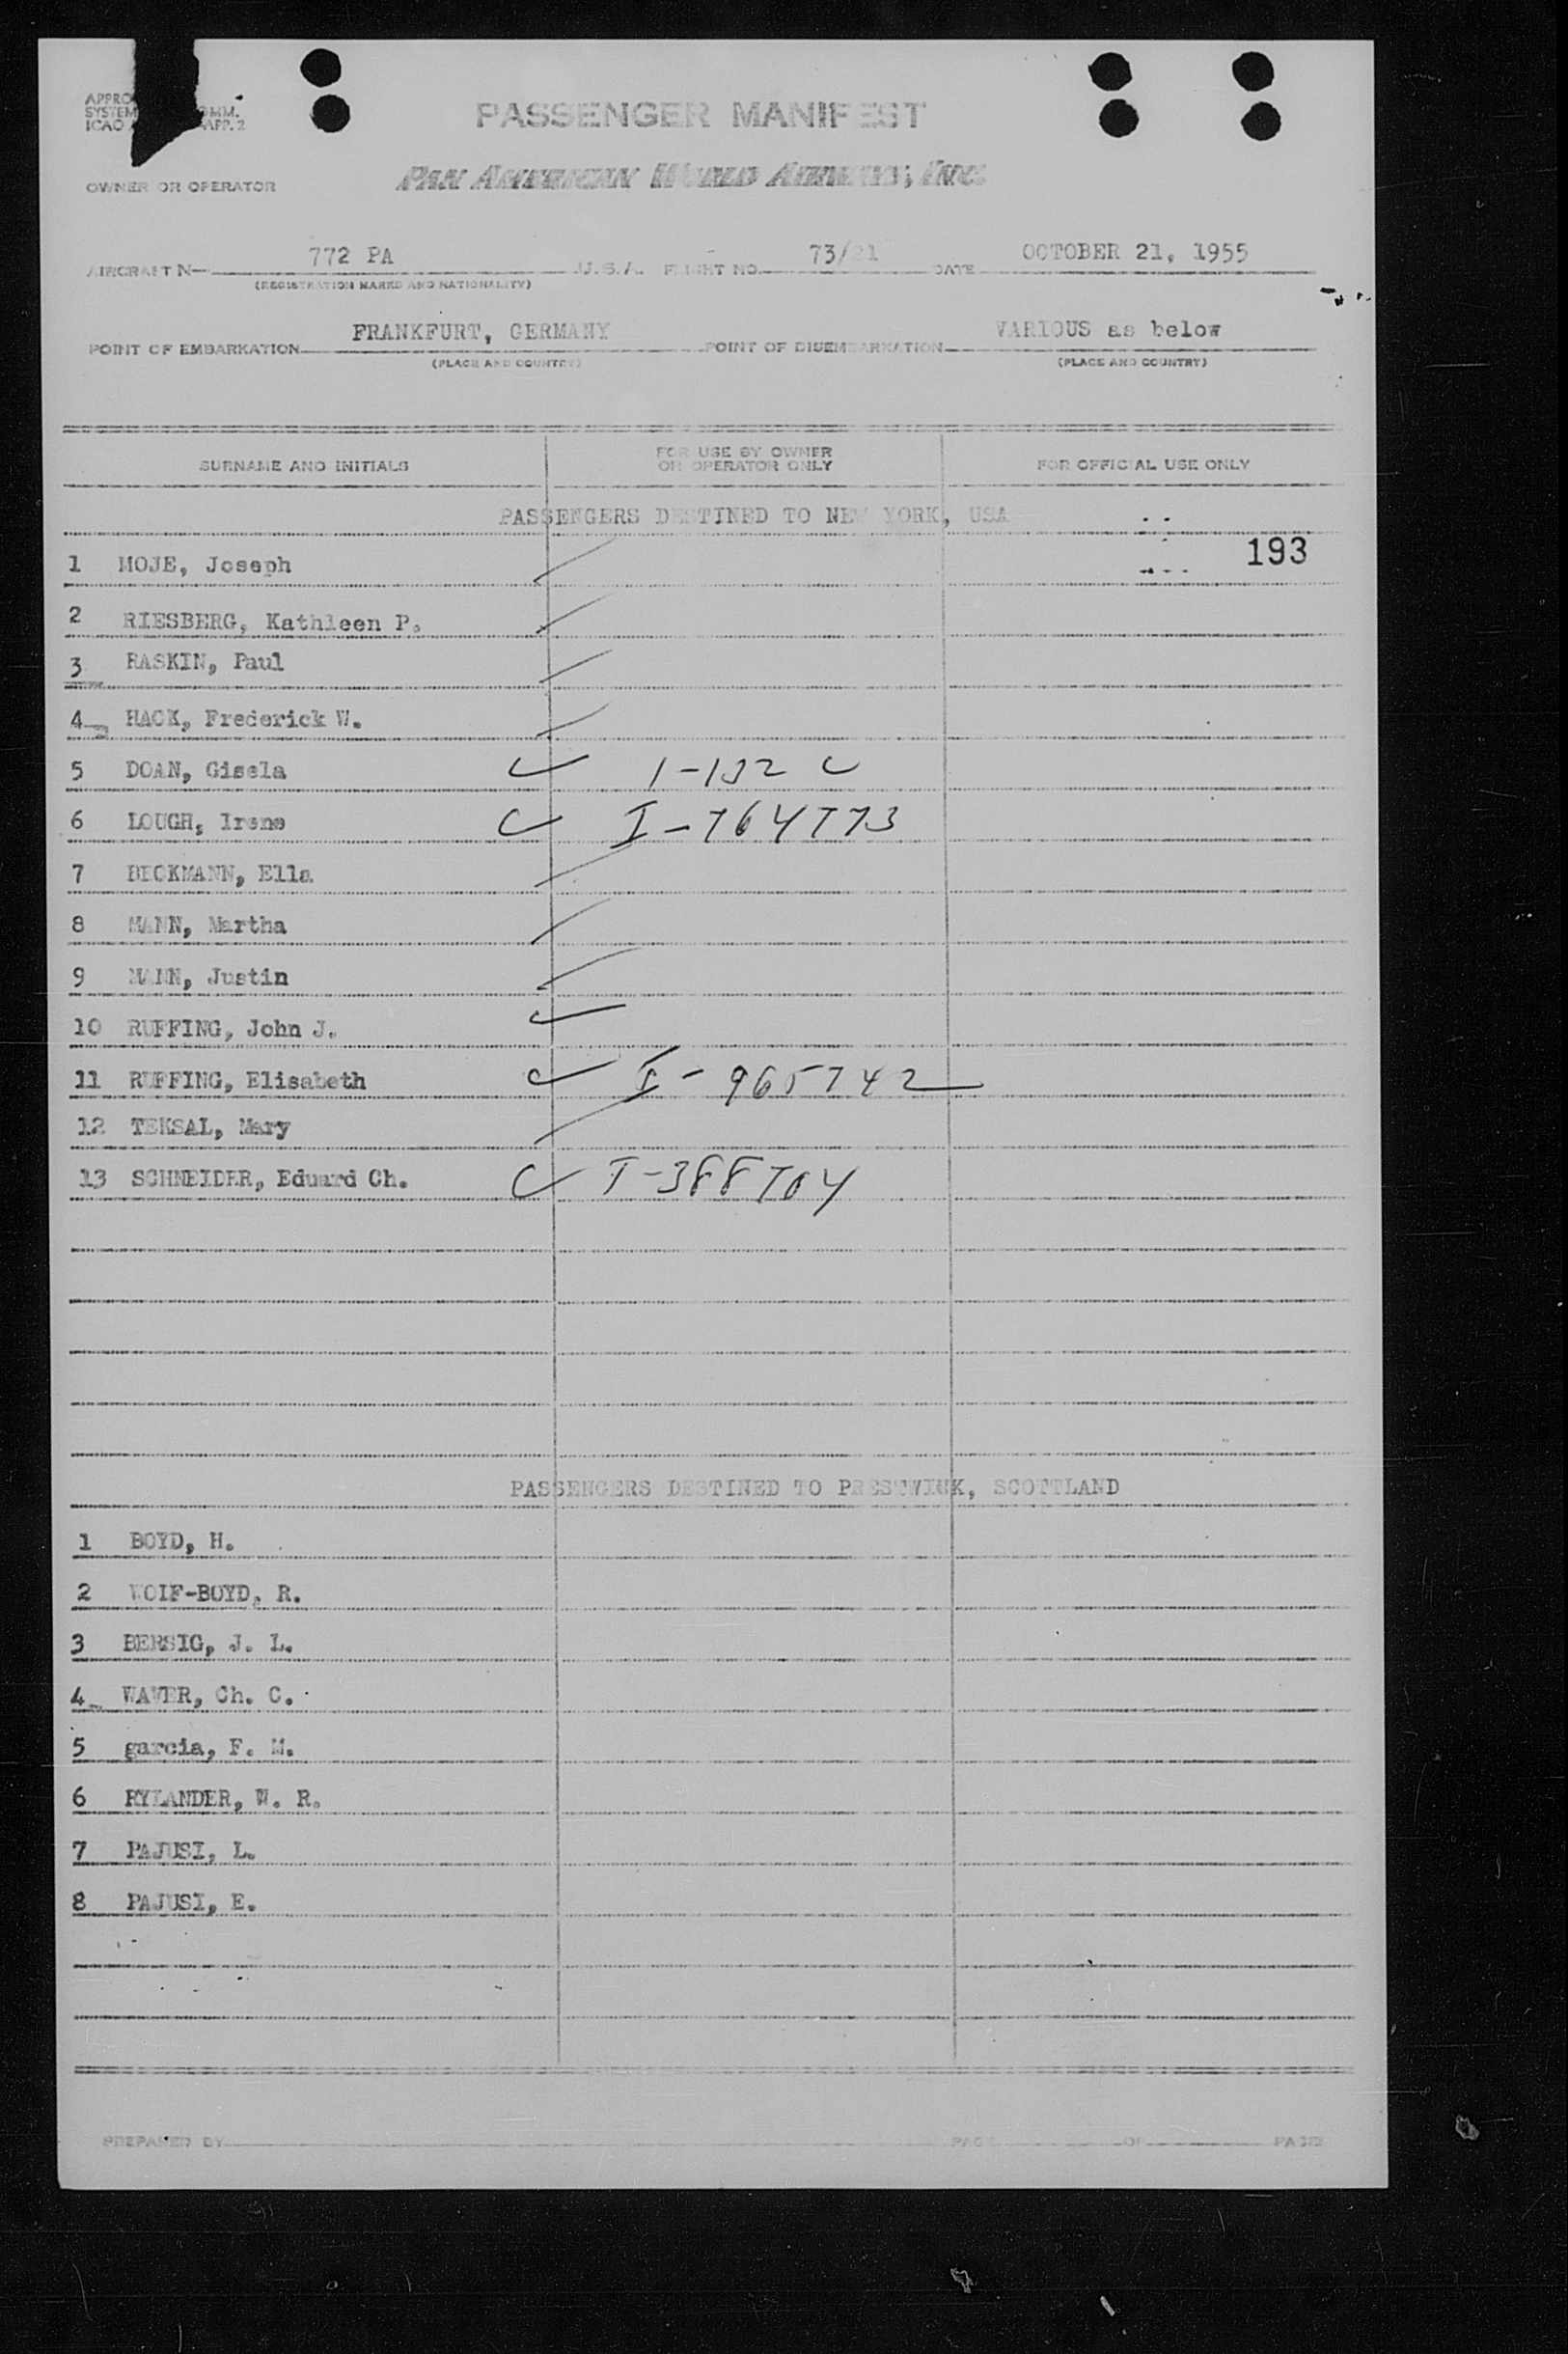 PASSENGER MANIFEST
OWNER OR OPERATOR
PAN AMERICAN WORLD AIRWAYS, INC.
AIRCRAFT 772 PA U.S.A. FLIGHT NO. 73/21 DATE OCTOBER 21, 1955
(REGISTRATION MARKS AND NATIONALITY)
POINT OF EMBARKATION FRANKFURT, GERMANY POINT OF DISEMBARKATION VARIOUS as below
(PLACE AND COUNTRY) (PLACE AND COUNTRY)
SURNAME AND INITIALS FOR USE BY OWNER OR OPERATOR ONLY FOR OFFICIAL USE ONLY
PASSENGERS DESTINED TO NEW YORK, USA
193
1 MOJE, Joseph
2 RIESBERG, Kathleen P.
3 RASKIN, Paul
4 HACK, Frederick W.
5 DOAN, Gisela I-132 C
6 LOUGH, Irene I-764773
7 BECKMANN, Ella
8 MANN, Martha
9 MANN, Justin
10 RUFFING, John J.
11 RUFFING, Elisabeth I-965742
12 TEKSAL, Mary
13 SCHNEIDER, Eduard Ch. I-388704
PASSENGERS DESTINED TO PRESTWICK, SCOTTLAND
1 BOYD, H.
2 WOIF-BOYD, R.
3 BERSIG, J. L.
4 WAVER, Ch. C.
5 garcia, F. M.
6 RYLANDER, W. R.
7 PAJUSI, L.
8 PAJUSI, E.
PREPARED BY PAGE OF PAGES